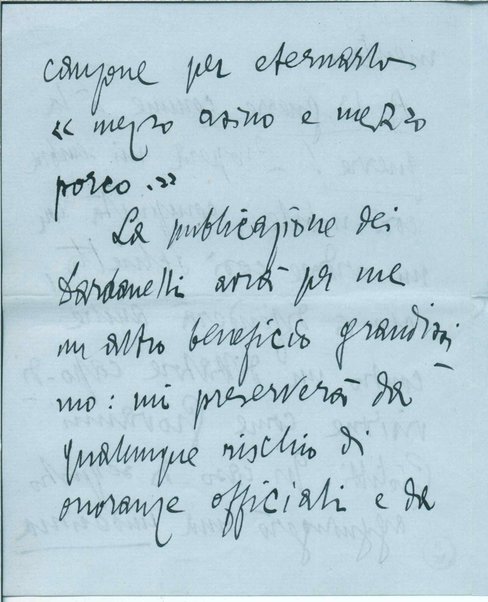 canzone per eternarlo
« mezzo asino e mezzo
porco. »
La publicazione dei
Dardanelli avrà per me
un altro beneficio grandissi
mo: mi preserverà da
qualunque rischio di
onoranze officiali e da